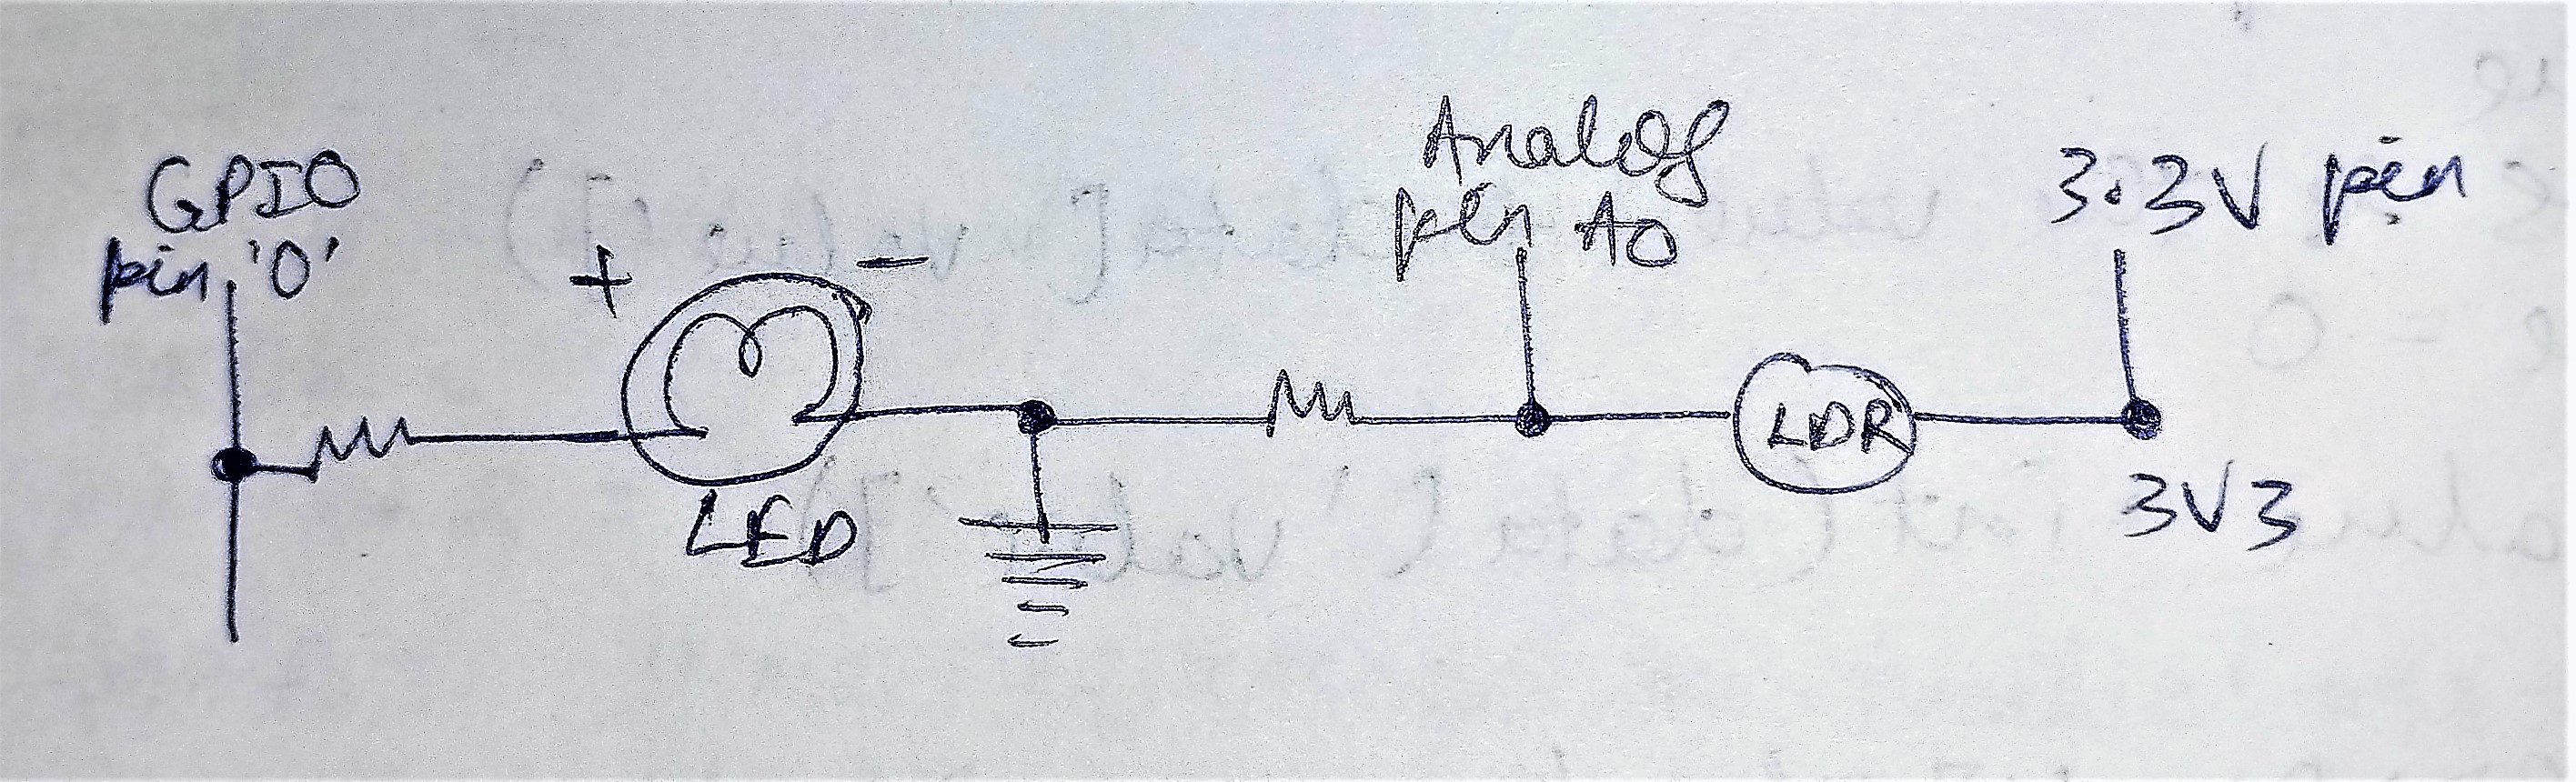 GPIO
pin '0'
+
-
LED
Analog
pin A0
LDR
3.3V pin
3V3